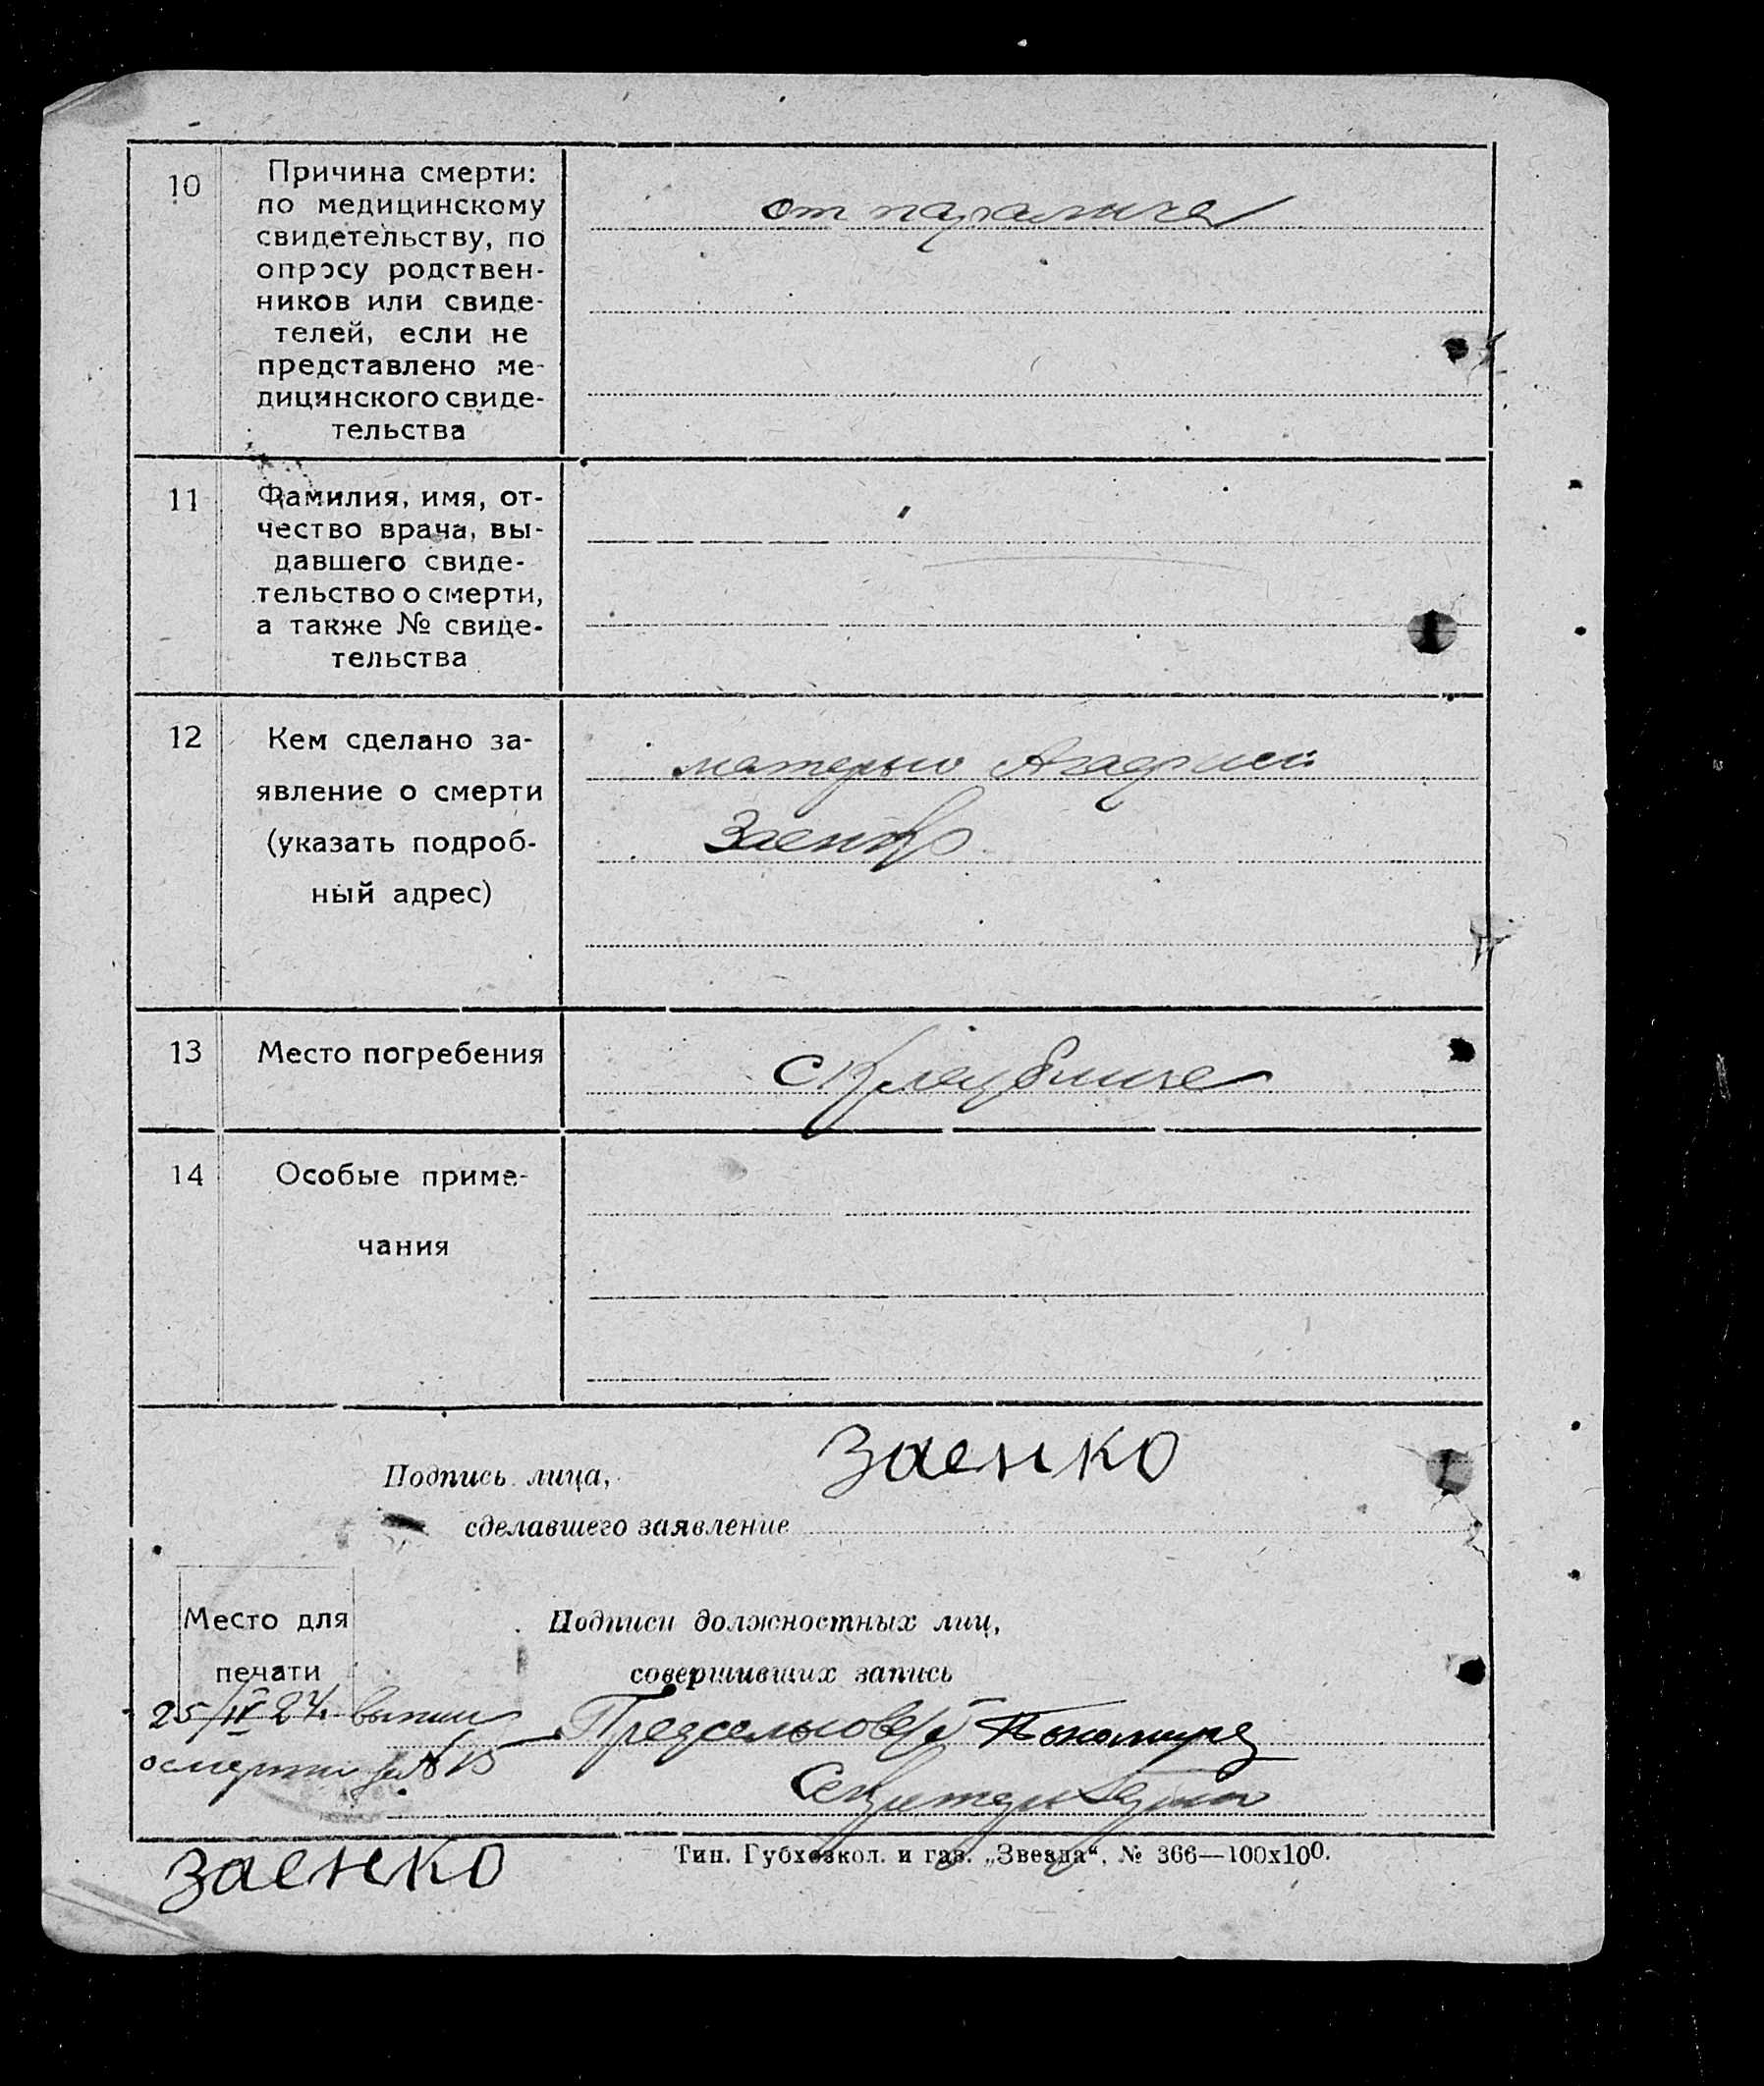 10
Причина смерти:
по медицинскому
свидетельству, по
опросу родствен-
ников или свиде-
телей, если не
представлено ме-
дицинского свиде-
тельства
от паралича
11
Фамилия, имя, от-
чество врача, вы-
давшего свиде-
тельство о смерти,
а также № свиде-
тельства
12
Кем сделано за-
явление о смерти
(указать подроб-
ный адрес)
матерью
Заенко
13
Место погребения
с
14
Особые приме-
чания
Подпись лица,
сделавшего заявление
Заенко
Место для
печати
Подписи должностных лиц,
совершивших запись
25/IV 24. выпись
о смерти за № 15
Предсельсовета
Секретарь
Заенко
Тип. Губхозкол. и газ. „Звезда“, № 366—100х100.